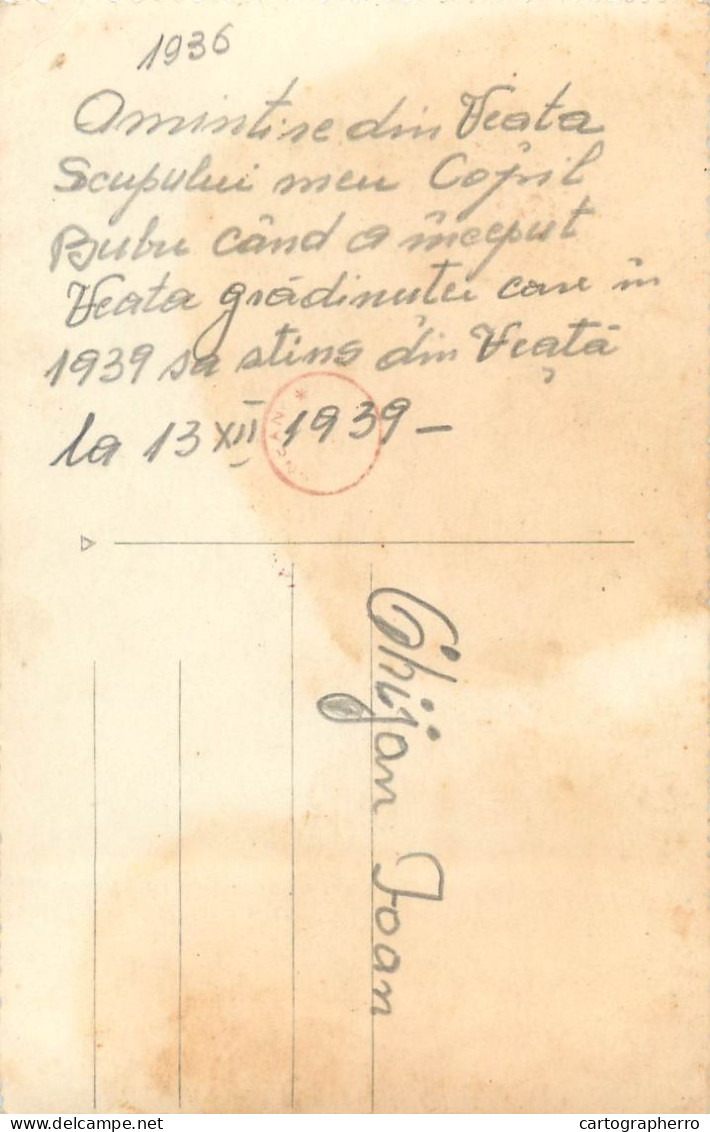 1936
Amintire din Veata
Scupului meu Copil
Bubu când a început
Veata grădinutei care în
1939 sa stins din Veață
la 13 XII 1939 –
Ghijan Ioan
cartographerro